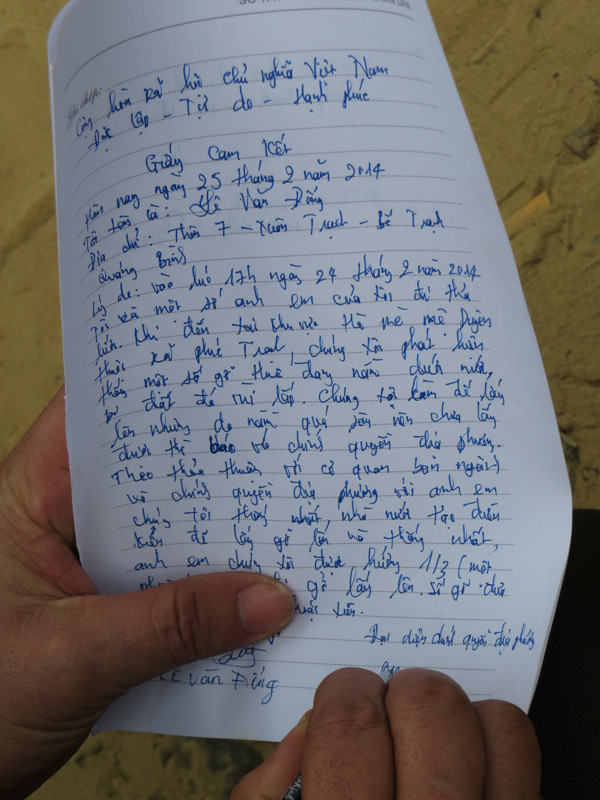 Cộng hòa xã hội chủ nghĩa Việt Nam
Độc lập - Tự do - Hạnh phúc
Giấy Cam Kết
Hôm nay ngày 25 tháng 2 năm 2014
Tôi tên là: Lê Văn
Địa chỉ: Thôn 7 - Xuân Trạch - Bố Trạch
Quảng Bình
Lý do: vào lúc 17h ngày 24 tháng 2 năm 2014
Tôi và một số anh em của tôi đi thả
lưới. Khi đến tại khu vực
thuộc xã phúc Trạch, chúng tôi phát hiện
thấy một số gỗ đang nằm dưới nước
bị đất đá vùi lấp. Chúng tôi làm để lấy
lên nhưng do nằm quá sâu nên chưa lấy
được thì báo về chính quyền địa phương.
Theo thỏa thuận với cơ quan ban ngành
và chính quyền địa phương với anh em
chúng tôi thống nhất nhà nước tạo điều
kiện để lấy gỗ lên và thống nhất,
anh em chúng tôi được hưởng 1/3 (một
gỗ lấy lên. số gỗ
Đại diện chính quyền địa phương
Văn